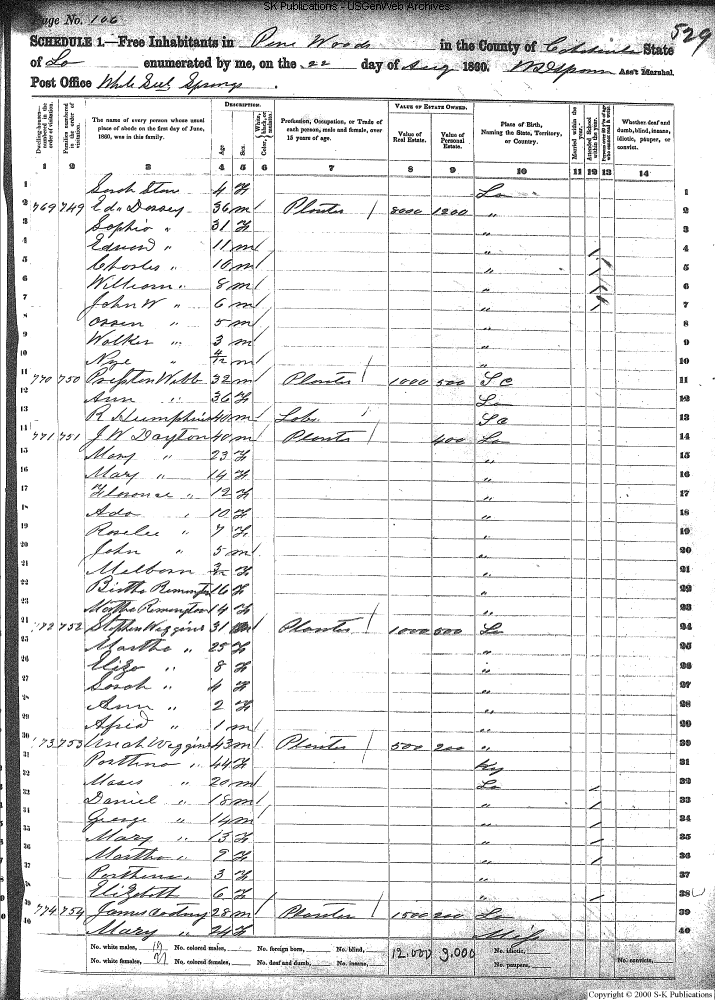 SK Publications - USGenWeb Archives
Page No. 166
529
SCHEDULE 1.—Free Inhabitants in Pine Woods in the County of Calcasieu State
of La enumerated by me, on the 22 day of Aug 1860. Ass't Marshal.
Post Office White Sul Springs
DESCRIPTION. VALUE OF ESTATE OWNED.
Dwelling-houses—numbered in the order of visitation. Families numbered in the order of visitation. The name of every person whose usual place of abode on the first day of June, 1860, was in this family. Age Sex. Color, White, black, or mulatto. Profession, Occupation, or Trade of each person, male and female, over 15 years of age. Value of Real Estate. Value of Personal Estate. Place of Birth, Naming the State, Territory, or Country. Married within the year. Attended School within the year. Persons over 20 y'rs of age who cannot read & write. Whether deaf and dumb, blind, insane, idiotic, pauper, or convict.
1 2 3 4 5 6 7 8 9 10 11 12 13 14
1 Sarah 4 F La 1
2 769 749 Ed. Dorsey 36 m Planter 8000 1200 " 2
3 Sophia " 31 F " 3
4 Edward " 11 m " / 4
5 Charles " 10 m " / 5
6 William " 8 m " / 6
7 John W " 6 m " / 7
8 " 5 m " 8
9 Walker " 3 m " 9
10 " 4/12 m " 10
11 770 750 Webb 32 m Planter 1000 500 S C 11
12 Ann " 36 F La 12
13 R Humphries 40 m Labr 13
14 771 751 J W Dayton 40 m Planter 400 La 14
15 Mary " 23 F " 15
16 Mary " 14 F " 16
17 Florence " 12 F " 17
18 Ada " 10 F " 18
19 Rosalee " 7 F " 19
20 John " 5 m " 20
21 Melborn F " 21
22 Remington 16 F " 22
23 Martha Remington 14 F " 23
24 772 752 Stephen Wiggins 31 m Planter 1000 500 La 24
25 Martha " 25 F " 25
26 Eliza " 8 F " 26
27 Sarah " 4 F " 27
28 Ann " 2 F " 28
29 Alfred " 1 m " 29
30 773 753 Wiggins 43 m Planter 500 200 " 30
31 " 44 F Ky 31
32 Moses " 20 m La / 32
33 Daniel " 18 m " / 33
34 George " 14 m " / 34
35 Mary " 13 F " / 35
36 Martha " 9 F " / 36
37 " 3 F " 37
38 Elizabeth 6 F " / 38
39 774 754 James 28 m Planter 1500 200 La 39
40 Mary " 24 F Miss 40
No. white males, 19 No. colored males, No. foreign born, No. blind, 12.000 3.000 No. idiotic,
No. white females, 21 No. colored females, No. deaf and dumb, No. insane, No. paupers, No. convicts,
Copyright © 2000 S-K Publications